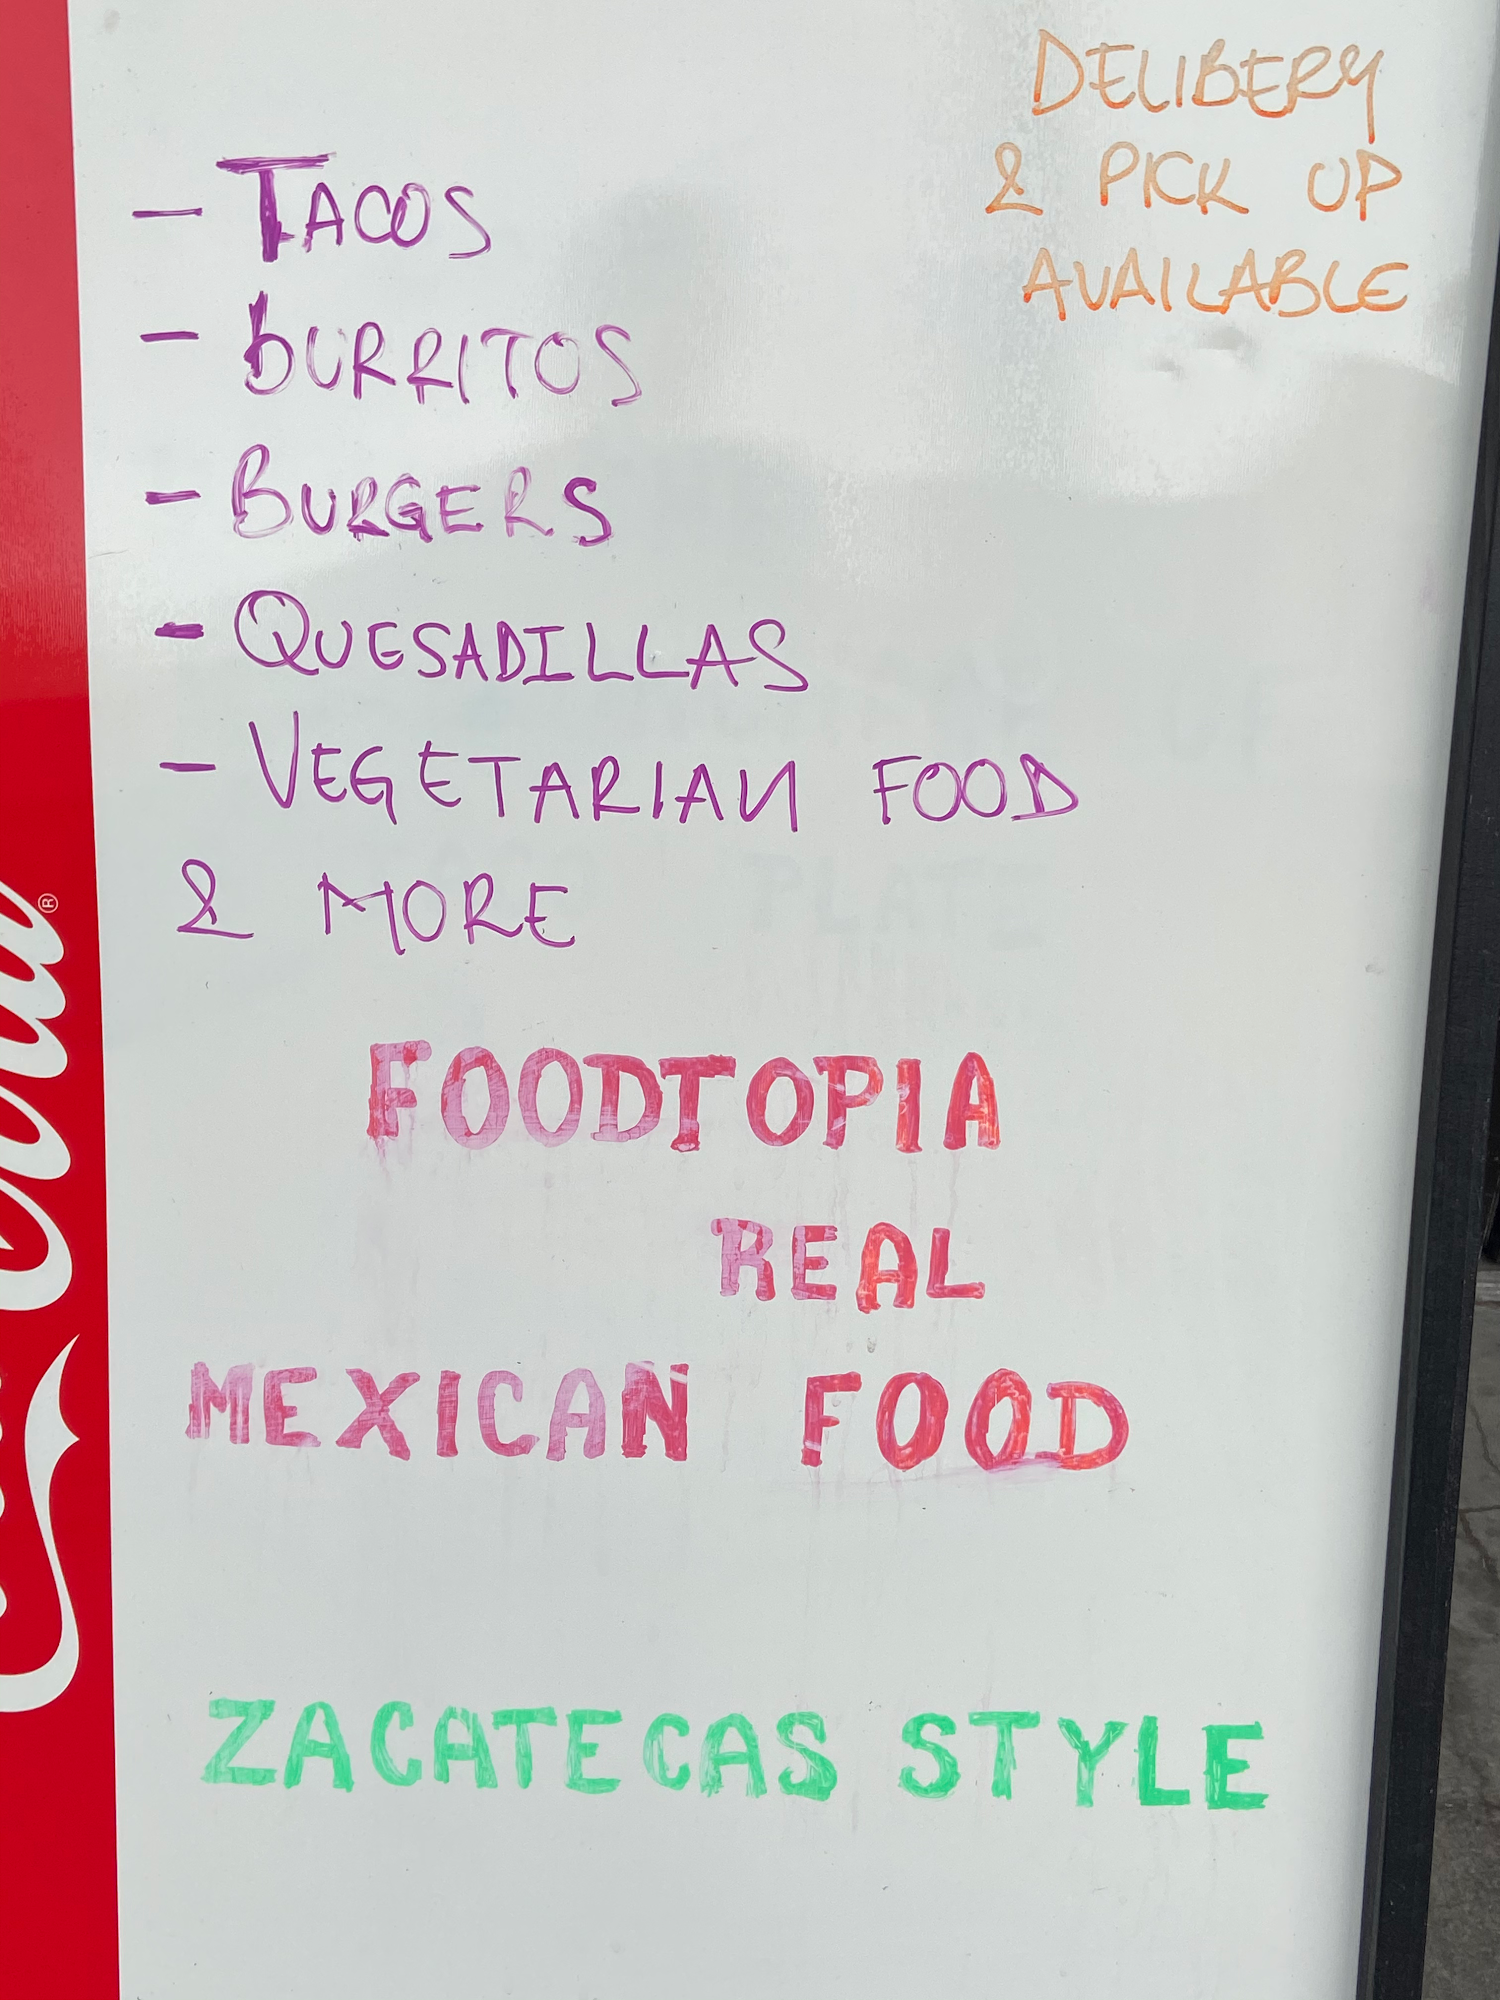 DELIBERY
& PICK UP
AVAILABLE
- TACOS
- BURRITOS
- BURGERS
- QUESADILLAS
- VEGETARIAN FOOD
& MORE
FOODTOPIA
REAL
MEXICAN FOOD
ZACATECAS STYLE
®